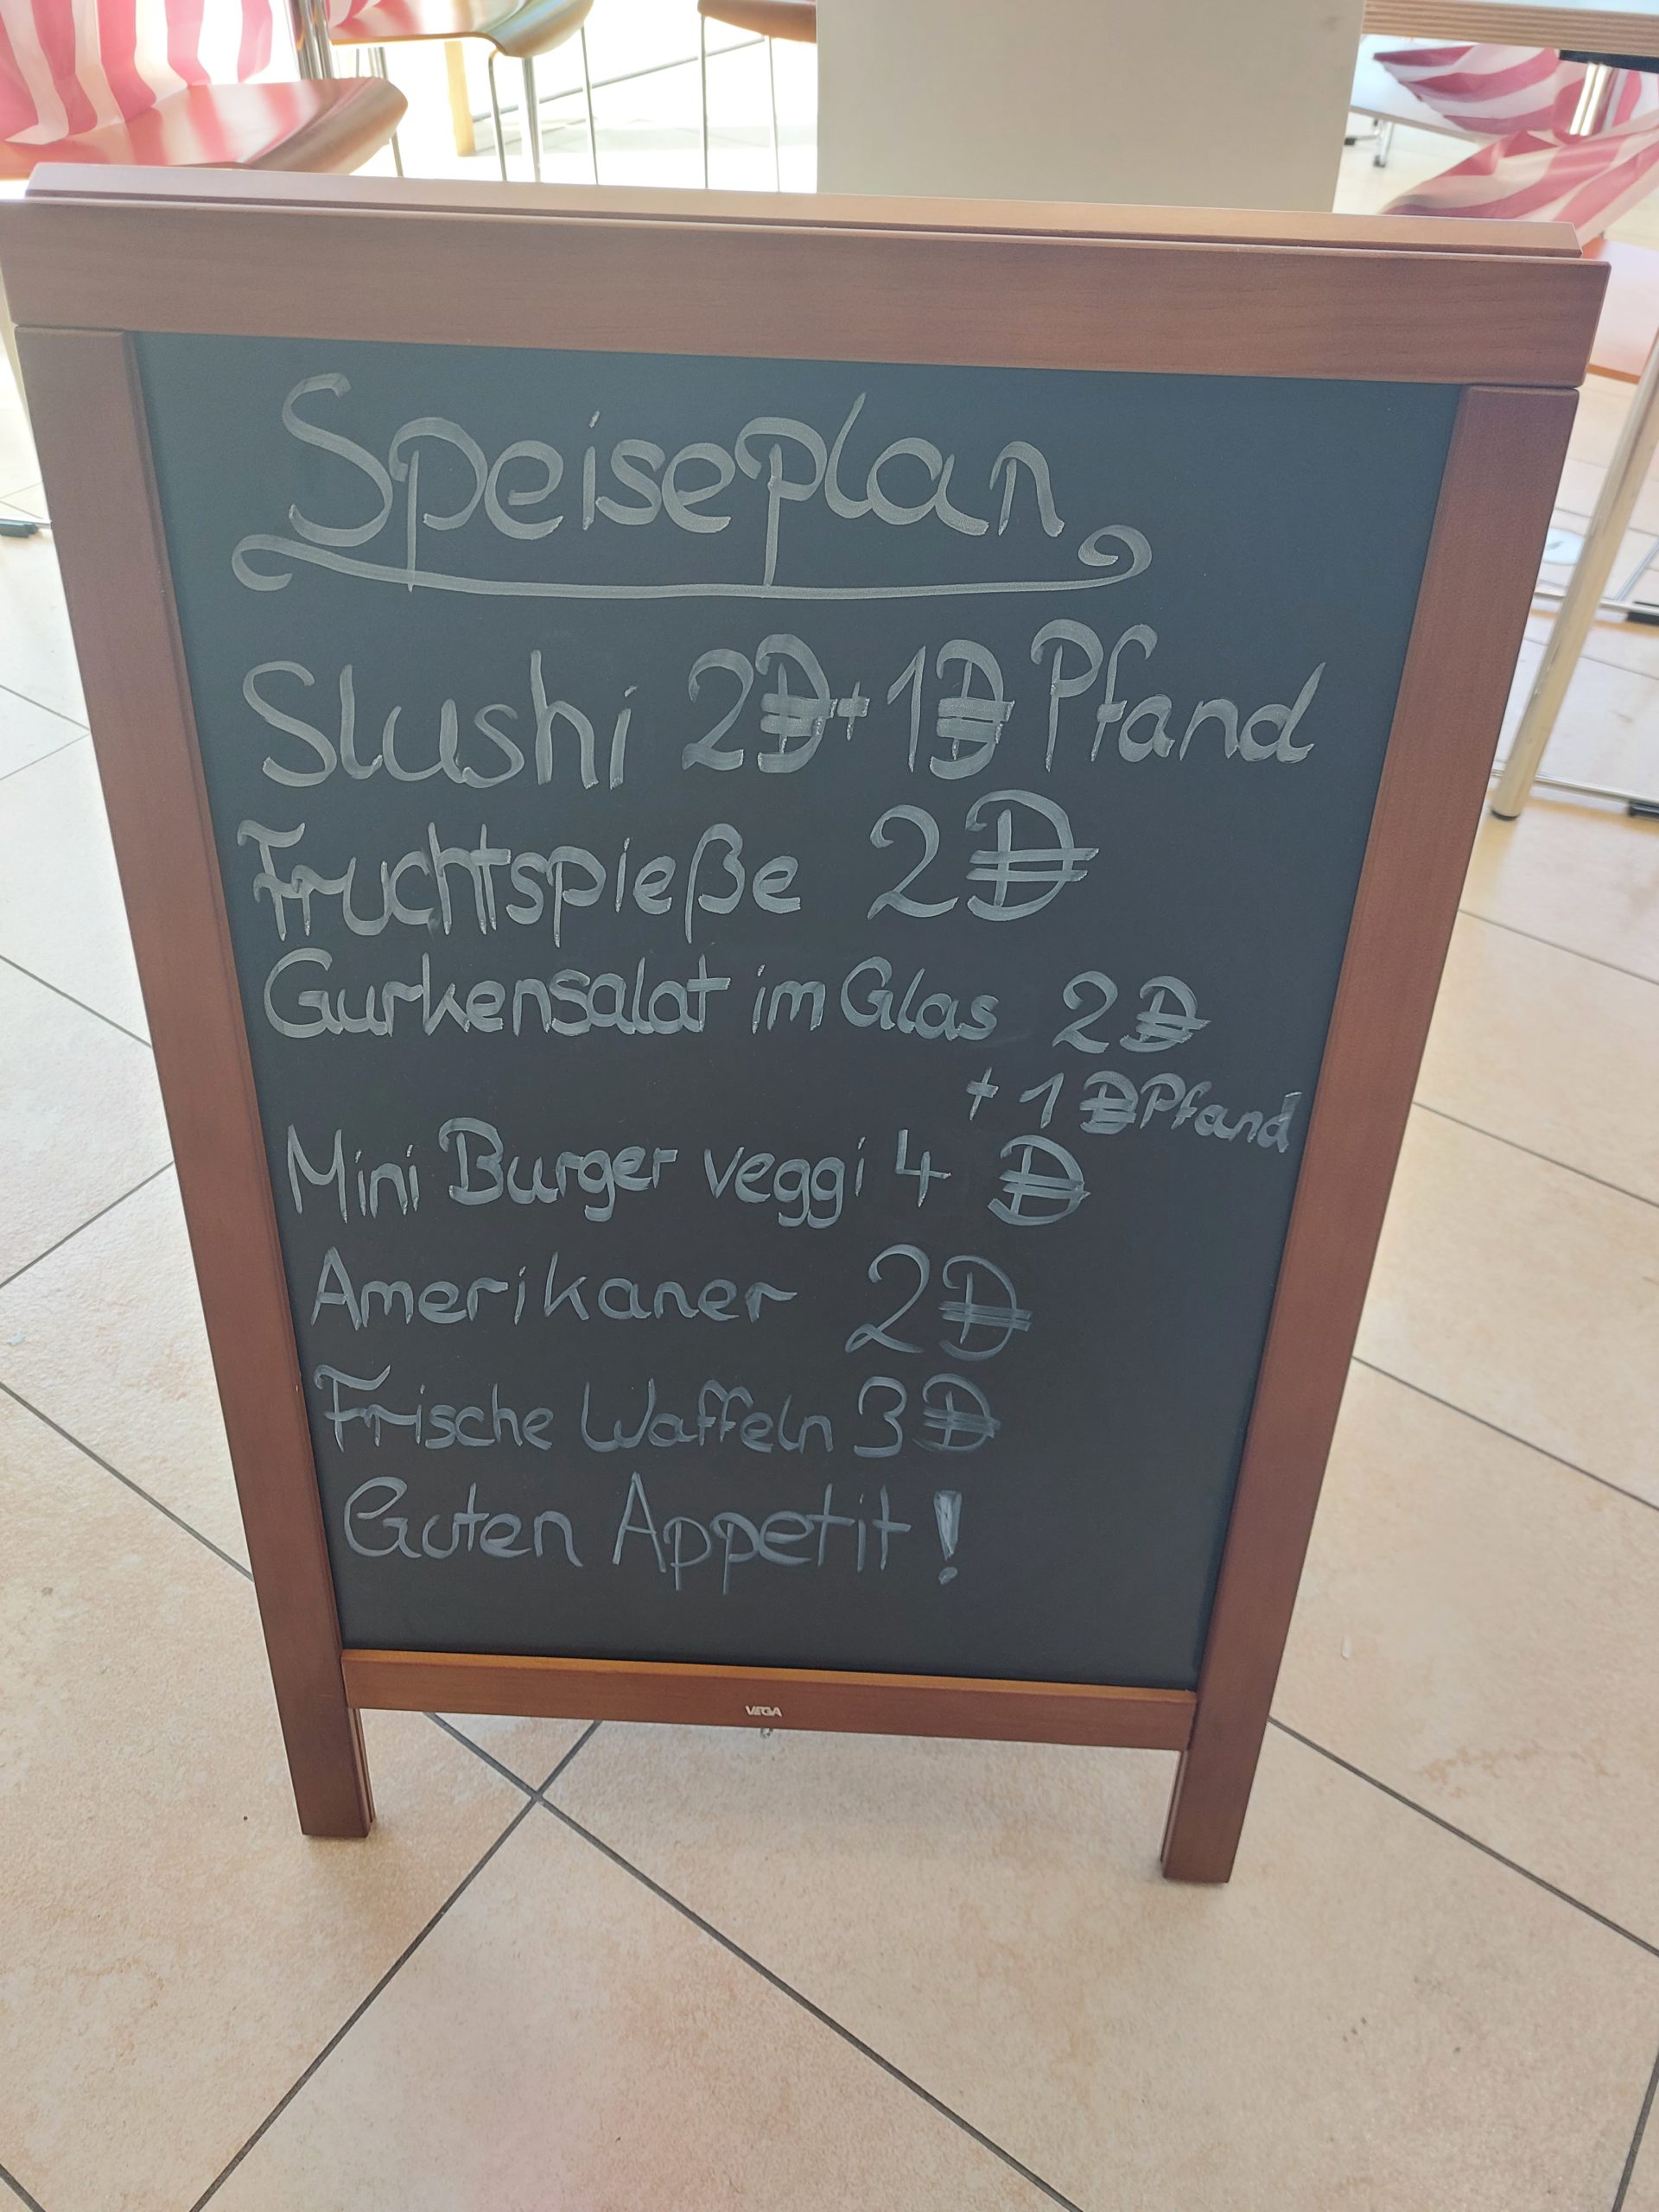 Speiseplan
Slushi 2 Đ + 1 Đ Pfand
Fruchtspieße 2 Đ
Gurkensalat im Glas 2 Đ
+ 1 Đ Pfand
Mini Burger veggi 4 Đ
Amerikaner 2 Đ
Frische Waffeln 3 Đ
Guten Appetit!
VEGA